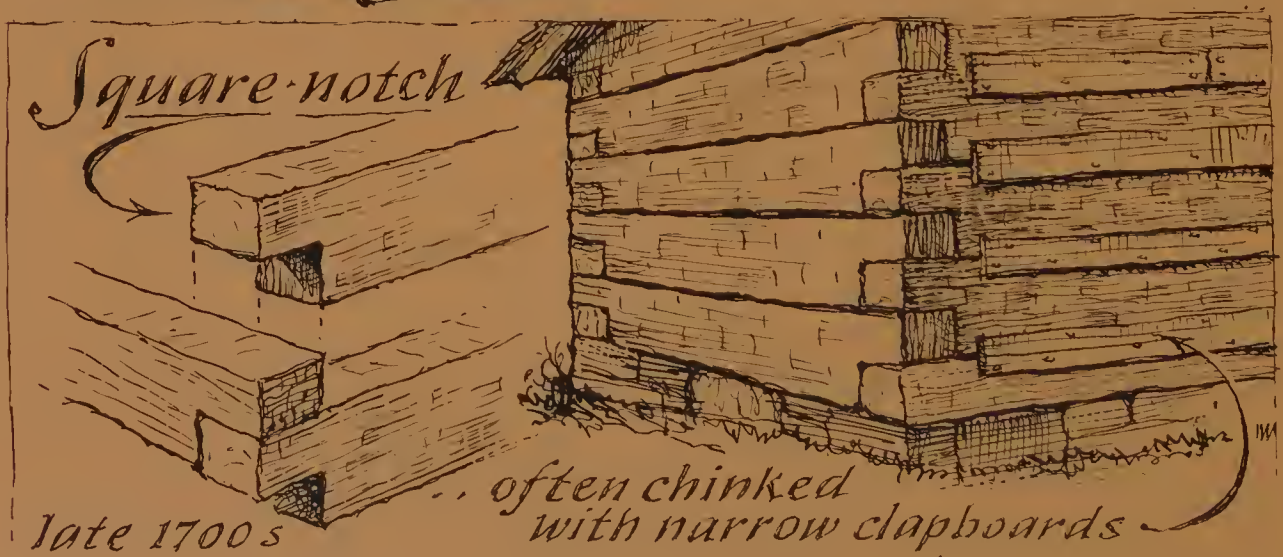 Square-notch
late 1700s
.. often chinked
with narrow clapboards